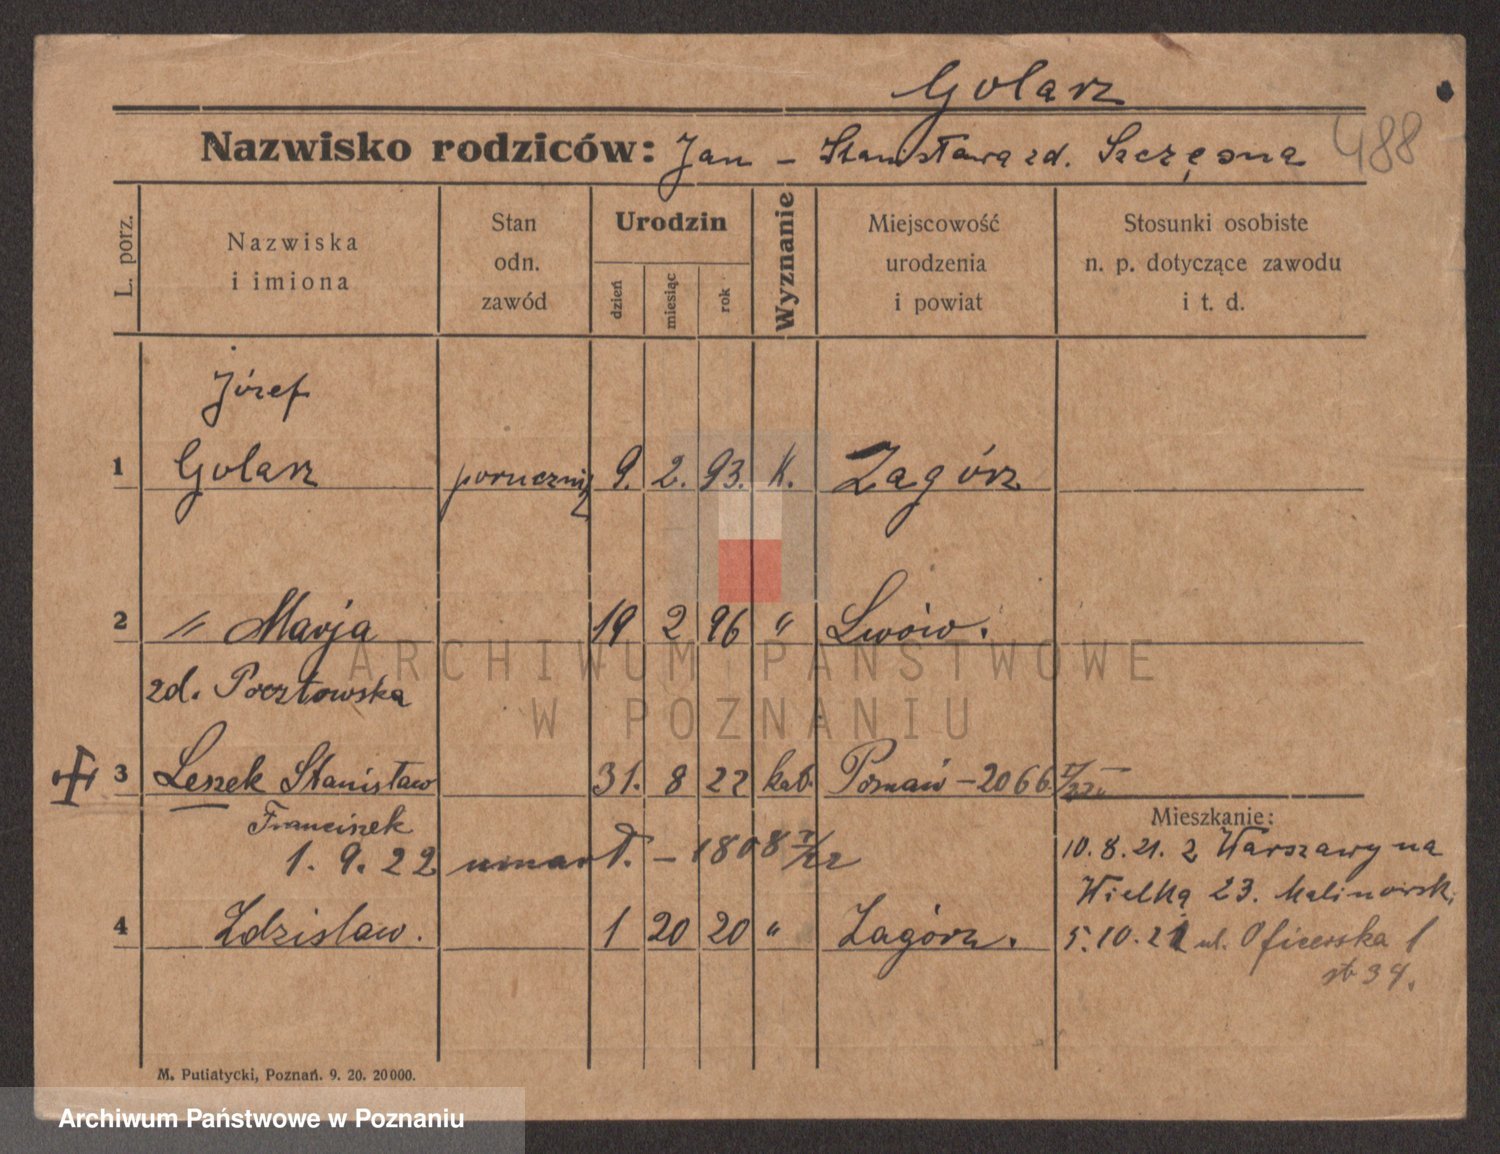 Golarz
Nazwisko rodziców: Jan – Stanisława zd. Szczęsna 488
L. porz.
Nazwiska i imiona
Stan odn. zawód
Urodzin
dzień miesiąc rok
Wyznanie
Miejscowość urodzenia i powiat
Stosunki osobiste n. p. dotyczące zawodu i t. d.
Józef
1 Golarz porucznik 9. 2. 93. k. Zagórz
2 " Marja 19 2 96 " Lwów.
zd. Pocztowska
3 Leszek Stanisław 31. 8 22 kat. Poznań – 2066
Franciszek
1. 9. 22 umarł. – 1808
4 Zdzislaw. 1 20 20 " Zagórz.
Mieszkanie:
10. 8. 21. z Warszawy na
Wielką 23. Malinowski
5. 10. 21 ul. Oficerska 1
M. Putiatycki, Poznań. 9. 20. 20000.
ARCHIWUM PAŃSTWOWE
W POZNANIU
Archiwum Państwowe w Poznaniu